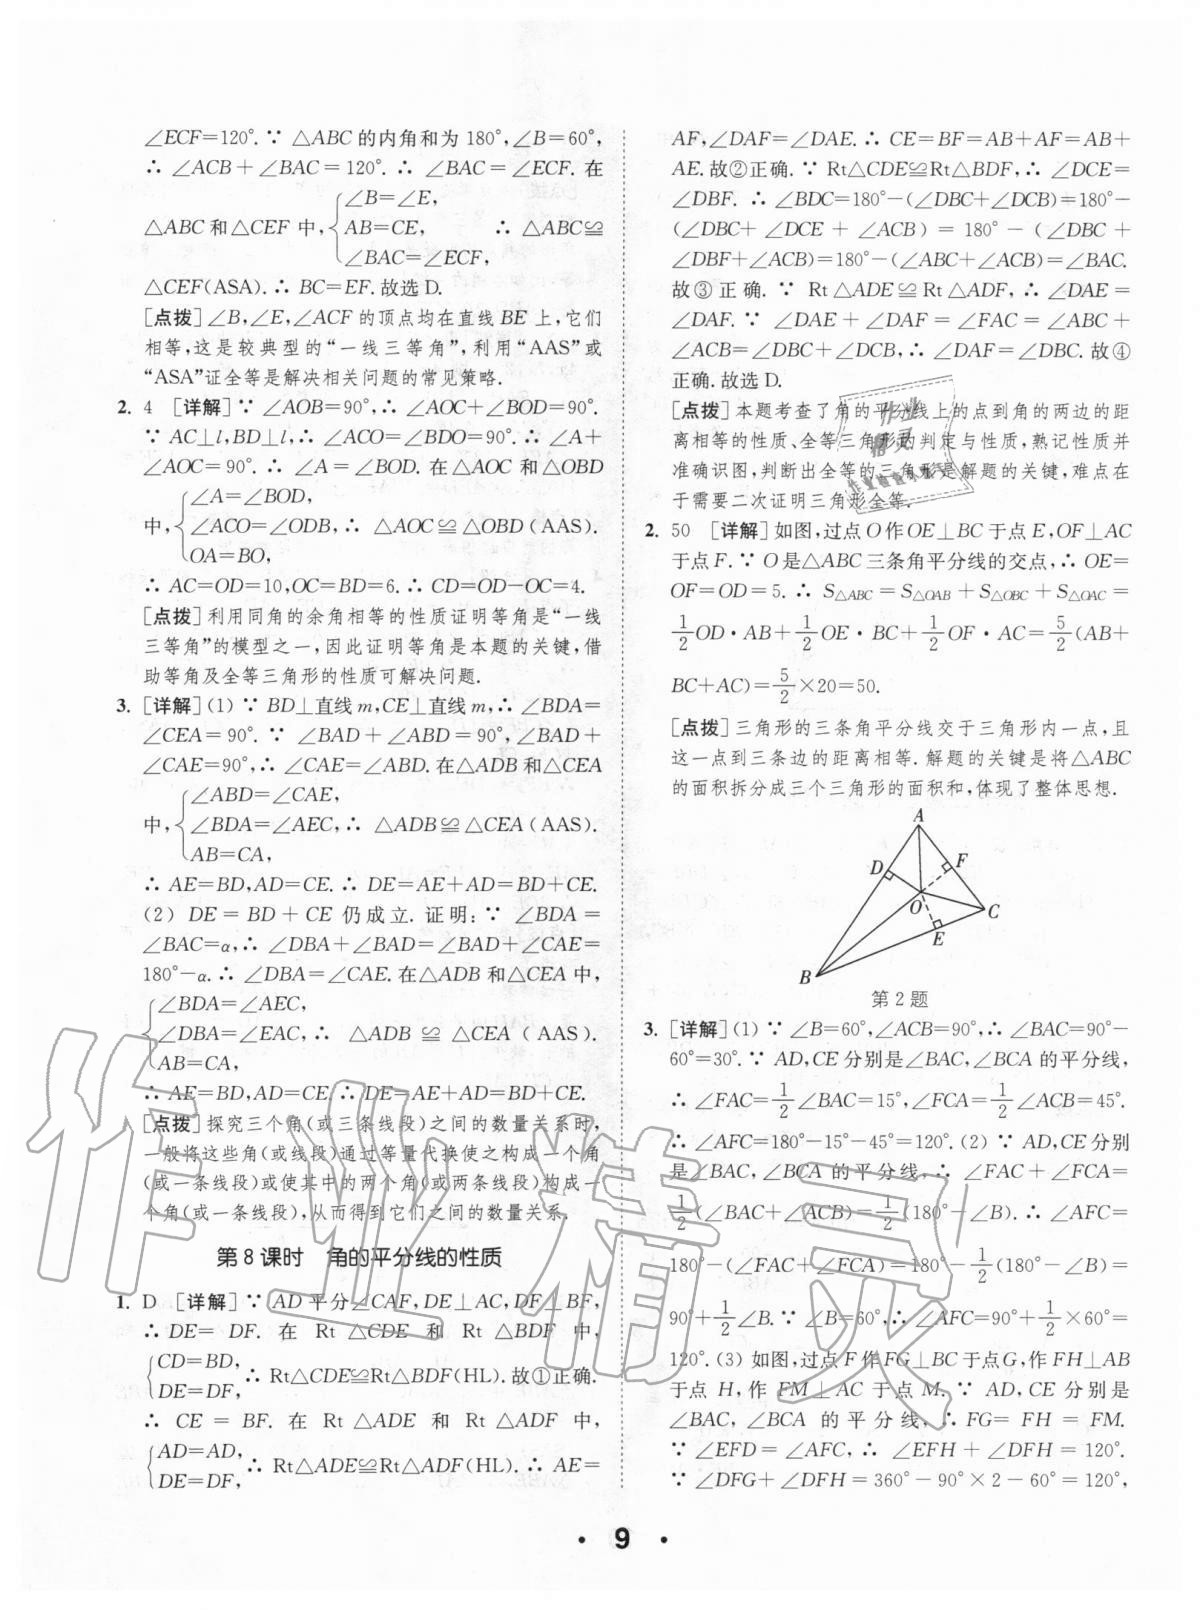 ∠ECF=120°.∵ △ABC的内角和为180°,∠B=60°,
∴ ∠ACB+∠BAC=120°.∴ ∠BAC=∠ECF.在
△ABC和△CEF中,{∠B=∠E,
AB=CE,
∠BAC=∠ECF,
∴ △ABC≌
△CEF(ASA).∴ BC=EF.故选D.
[点拨]∠B,∠E,∠ACF的顶点均在直线BE上,它们
相等,这是较典型的“一线三等角”,利用“AAS”或
“ASA”证全等是解决相关问题的常见策略.
2. 4 [详解]∵ ∠AOB=90°,∴ ∠AOC+∠BOD=90°.
∵ AC⊥l,BD⊥l,∴ ∠ACO=∠BDO=90°.∴ ∠A+
∠AOC=90°.∴ ∠A=∠BOD.在△AOC和△OBD
中,{∠A=∠BOD,
∠ACO=∠ODB,
OA=BO,
∴ △AOC≌△OBD(AAS).
∴ AC=OD=10,OC=BD=6.∴ CD=OD-OC=4.
[点拨]利用同角的余角相等的性质证明等角是“一线
三等角”的模型之一,因此证明等角是本题的关键,借
助等角及全等三角形的性质可解决问题.
3. [详解](1) ∵ BD⊥直线m,CE⊥直线m,∴ ∠BDA=
∠CEA=90°.∵ ∠BAD+∠ABD=90°,∠BAD+
∠CAE=90°,∴ ∠CAE=∠ABD.在△ADB和△CEA
中,{∠ABD=∠CAE,
∠BDA=∠AEC,
AB=CA,
∴ △ADB≌△CEA(AAS).
∴ AE=BD,AD=CE.∴ DE=AE+AD=BD+CE.
(2) DE=BD+CE仍成立.证明:∵ ∠BDA=
∠BAC=α,∴ ∠DBA+∠BAD=∠BAD+∠CAE=
180°-α.∴ ∠DBA=∠CAE.在△ADB和△CEA中,
{∠BDA=∠AEC,
∠DBA=∠EAC,
AB=CA,
∴ △ADB≌△CEA(AAS).
∴ AE=BD,AD=CE.∴ DE=AE+AD=BD+CE.
[点拨]探究三个角(或三条线段)之间的数量关系时,
一般将这些角(或线段)通过等量代换使之构成一个角
(或一条线段)或使其中的两个角(或两条线段)构成一
个角(或一条线段),从而得到它们之间的数量关系.
第8课时 角的平分线的性质
1. D [详解]∵ AD平分∠CAF,DE⊥AC,DF⊥BF,
∴ DE=DF.在Rt△CDE和Rt△BDF中,
{CD=BD,
DE=DF,
∴ Rt△CDE≌Rt△BDF(HL).故①正确.
∴ CE=BF.在Rt△ADE和Rt△ADF中,
{AD=AD,
DE=DF,
∴ Rt△ADE≌Rt△ADF(HL).∴ AE=
AF,∠DAF=∠DAE.∴ CE=BF=AB+AF=AB+
AE.故②正确.∵ Rt△CDE≌Rt△BDF,∴ ∠DCE=
∠DBF.∴ ∠BDC=180°-(∠DBC+∠DCB)=180°-
(∠DBC+∠DCE+∠ACB)=180°-(∠DBC+
∠DBF+∠ACB)=180°-(∠ABC+∠ACB)=∠BAC.
故③正确.∵ Rt△ADE≌Rt△ADF,∴ ∠DAE=
∠DAF.∵ ∠DAE+∠DAF=∠FAC=∠ABC+
∠ACB=∠DBC+∠DCB,∴ ∠DAF=∠DBC.故④
正确.故选D.
[点拨]本题考查了角的平分线上的点到角的两边的距
离相等的性质、全等三角形的判定与性质,熟记性质并
准确识图,判断出全等的三角形是解题的关键,难点在
于需要二次证明三角形全等.
2. 50 [详解]如图,过点O作OE⊥BC于点E,OF⊥AC
于点F.∵ O是△ABC三条角平分线的交点,∴ OE=
OF=OD=5.∴ S△ABC=S△OAB+S△OBC+S△OAC=
1/2 OD·AB+1/2 OE·BC+1/2 OF·AC=5/2(AB+
BC+AC)=5/2×20=50.
[点拨]三角形的三条角平分线交于三角形内一点,且
这一点到三条边的距离相等.解题的关键是将△ABC
的面积拆分成三个三角形的面积和,体现了整体思想.
A
D
F
O
C
E
B
第2题
3. [详解](1) ∵ ∠B=60°,∠ACB=90°,∴ ∠BAC=90°-
60°=30°.∵ AD,CE分别是∠BAC,∠BCA的平分线,
∴ ∠FAC=1/2∠BAC=15°,∠FCA=1/2∠ACB=45°.
∴ ∠AFC=180°-15°-45°=120°.(2) ∵ AD,CE分别
是∠BAC,∠BCA的平分线,∴ ∠FAC+∠FCA=
1/2(∠BAC+∠ACB)=1/2(180°-∠B).∴ ∠AFC=
180°-(∠FAC+∠FCA)=180°-1/2(180°-∠B)=
90°+1/2∠B.∵ ∠B=60°,∴ ∠AFC=90°+1/2×60°=
120°.(3) 如图,过点F作FG⊥BC于点G,作FH⊥AB
于点H,作FM⊥AC于点M.∵ AD,CE分别是
∠BAC,∠BCA的平分线,∴ FG=FH=FM.
∵ ∠EFD=∠AFC,∴ ∠EFH+∠DFH=120°.
∵ ∠DFG+∠DFH=360°-90°×2-60°=120°,
• 9 •
作业精灵